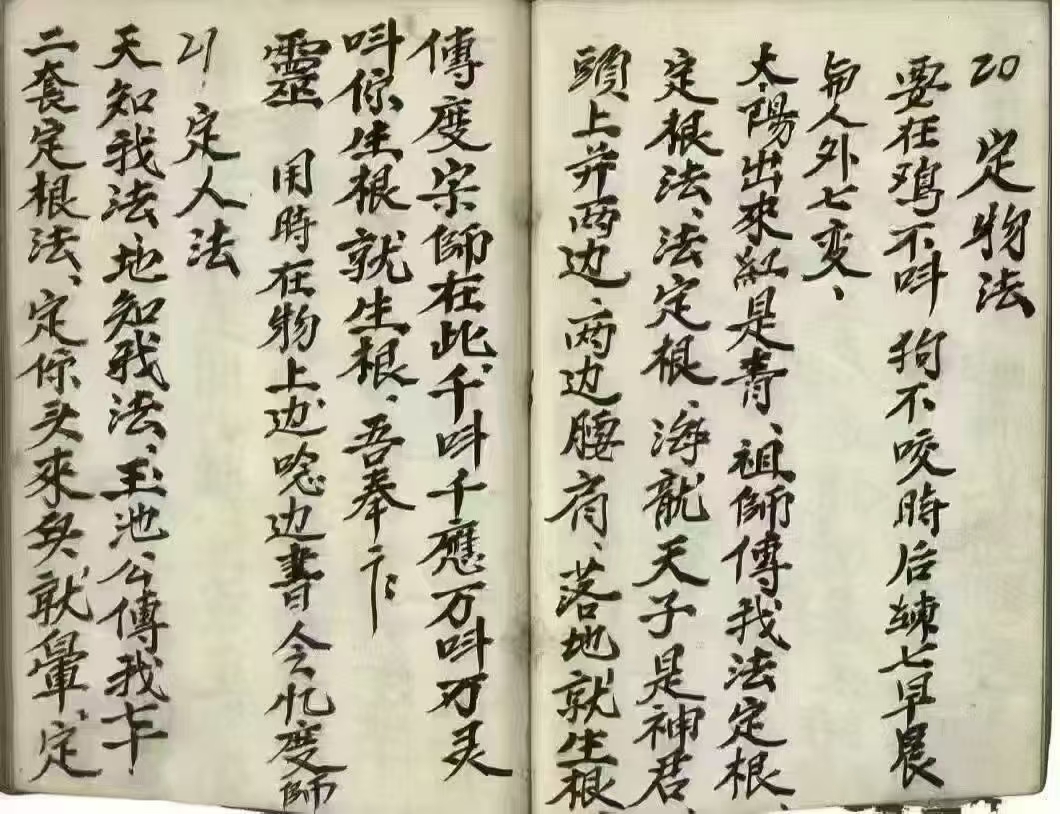 20 定物法
要在鳮不呌狗不咬時后練七早晨
另人外七变、
太陽出來紅是青、祖師傳我法定根、
定根法、法定根、海龍天子是神君、
頭上并两边、两边腰肩、落地就生根
傳度宗師在此、千呌千應万呌万灵
呌你生根就生根、吾奉
靈 用時在物上边唸边書令忆度師
21 定人法
天知我法、地知我法、玉池公傳我卡
二套定根法、定你头來奐、就暈、定